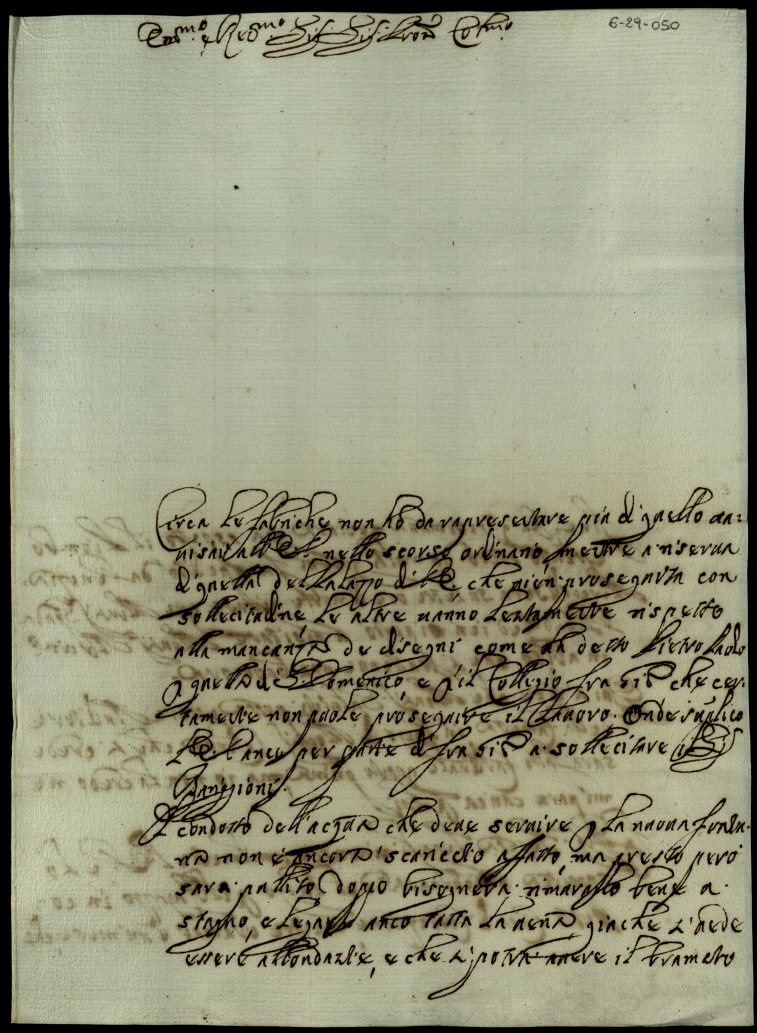 6-29-050
Em.mo e Re.mo Sig. Sig. Pron. Col.mo
Circa le fabriche non hò da rapresentare più di quello au:
uisai all' E. S. nello scorso ordinario mentre a riserua
di quella del Palazzo di V. E. che uien proseguita con
sollecitudine le altre uanno lentamente rispetto
alla mancanza de disegni come hà detto Pietro Paolo
p quella di S. Domenico, e p il Collegio fra Gio che cer:
tamente non puole proseguire il lauoro. Onde suplico
V. E. anco per parte di fra Gio a sollecitare il S.
Il condotto dell'acqua che deue seruire p la nuoua fonta:
na non è ancora scaricato affatto, ma presto però
sarà pulito, dopo bisognerà rimurarlo bene a
stagno, e legare anco tutta la uena giache si uede
essere abbondante, e che si potrà auere il bramato